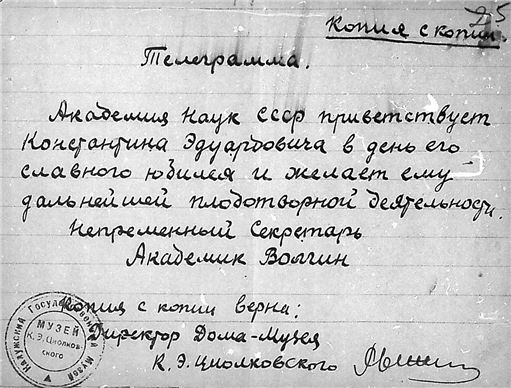 25
Копия с копии.
Телеграмма.
Академия наук СССР приветствует
Константина Эдуардовича в день его
славного юбилея и желает ему
дальнейшей плодотворной деятельности.
Непременный Секретарь
Академик Волгин
Копия с копии верна:
Директор Дома-Музея
К. Э. Циолковского
Калужский Государственный Музей
МУЗЕЙ
К. Э. Циолков-
ского